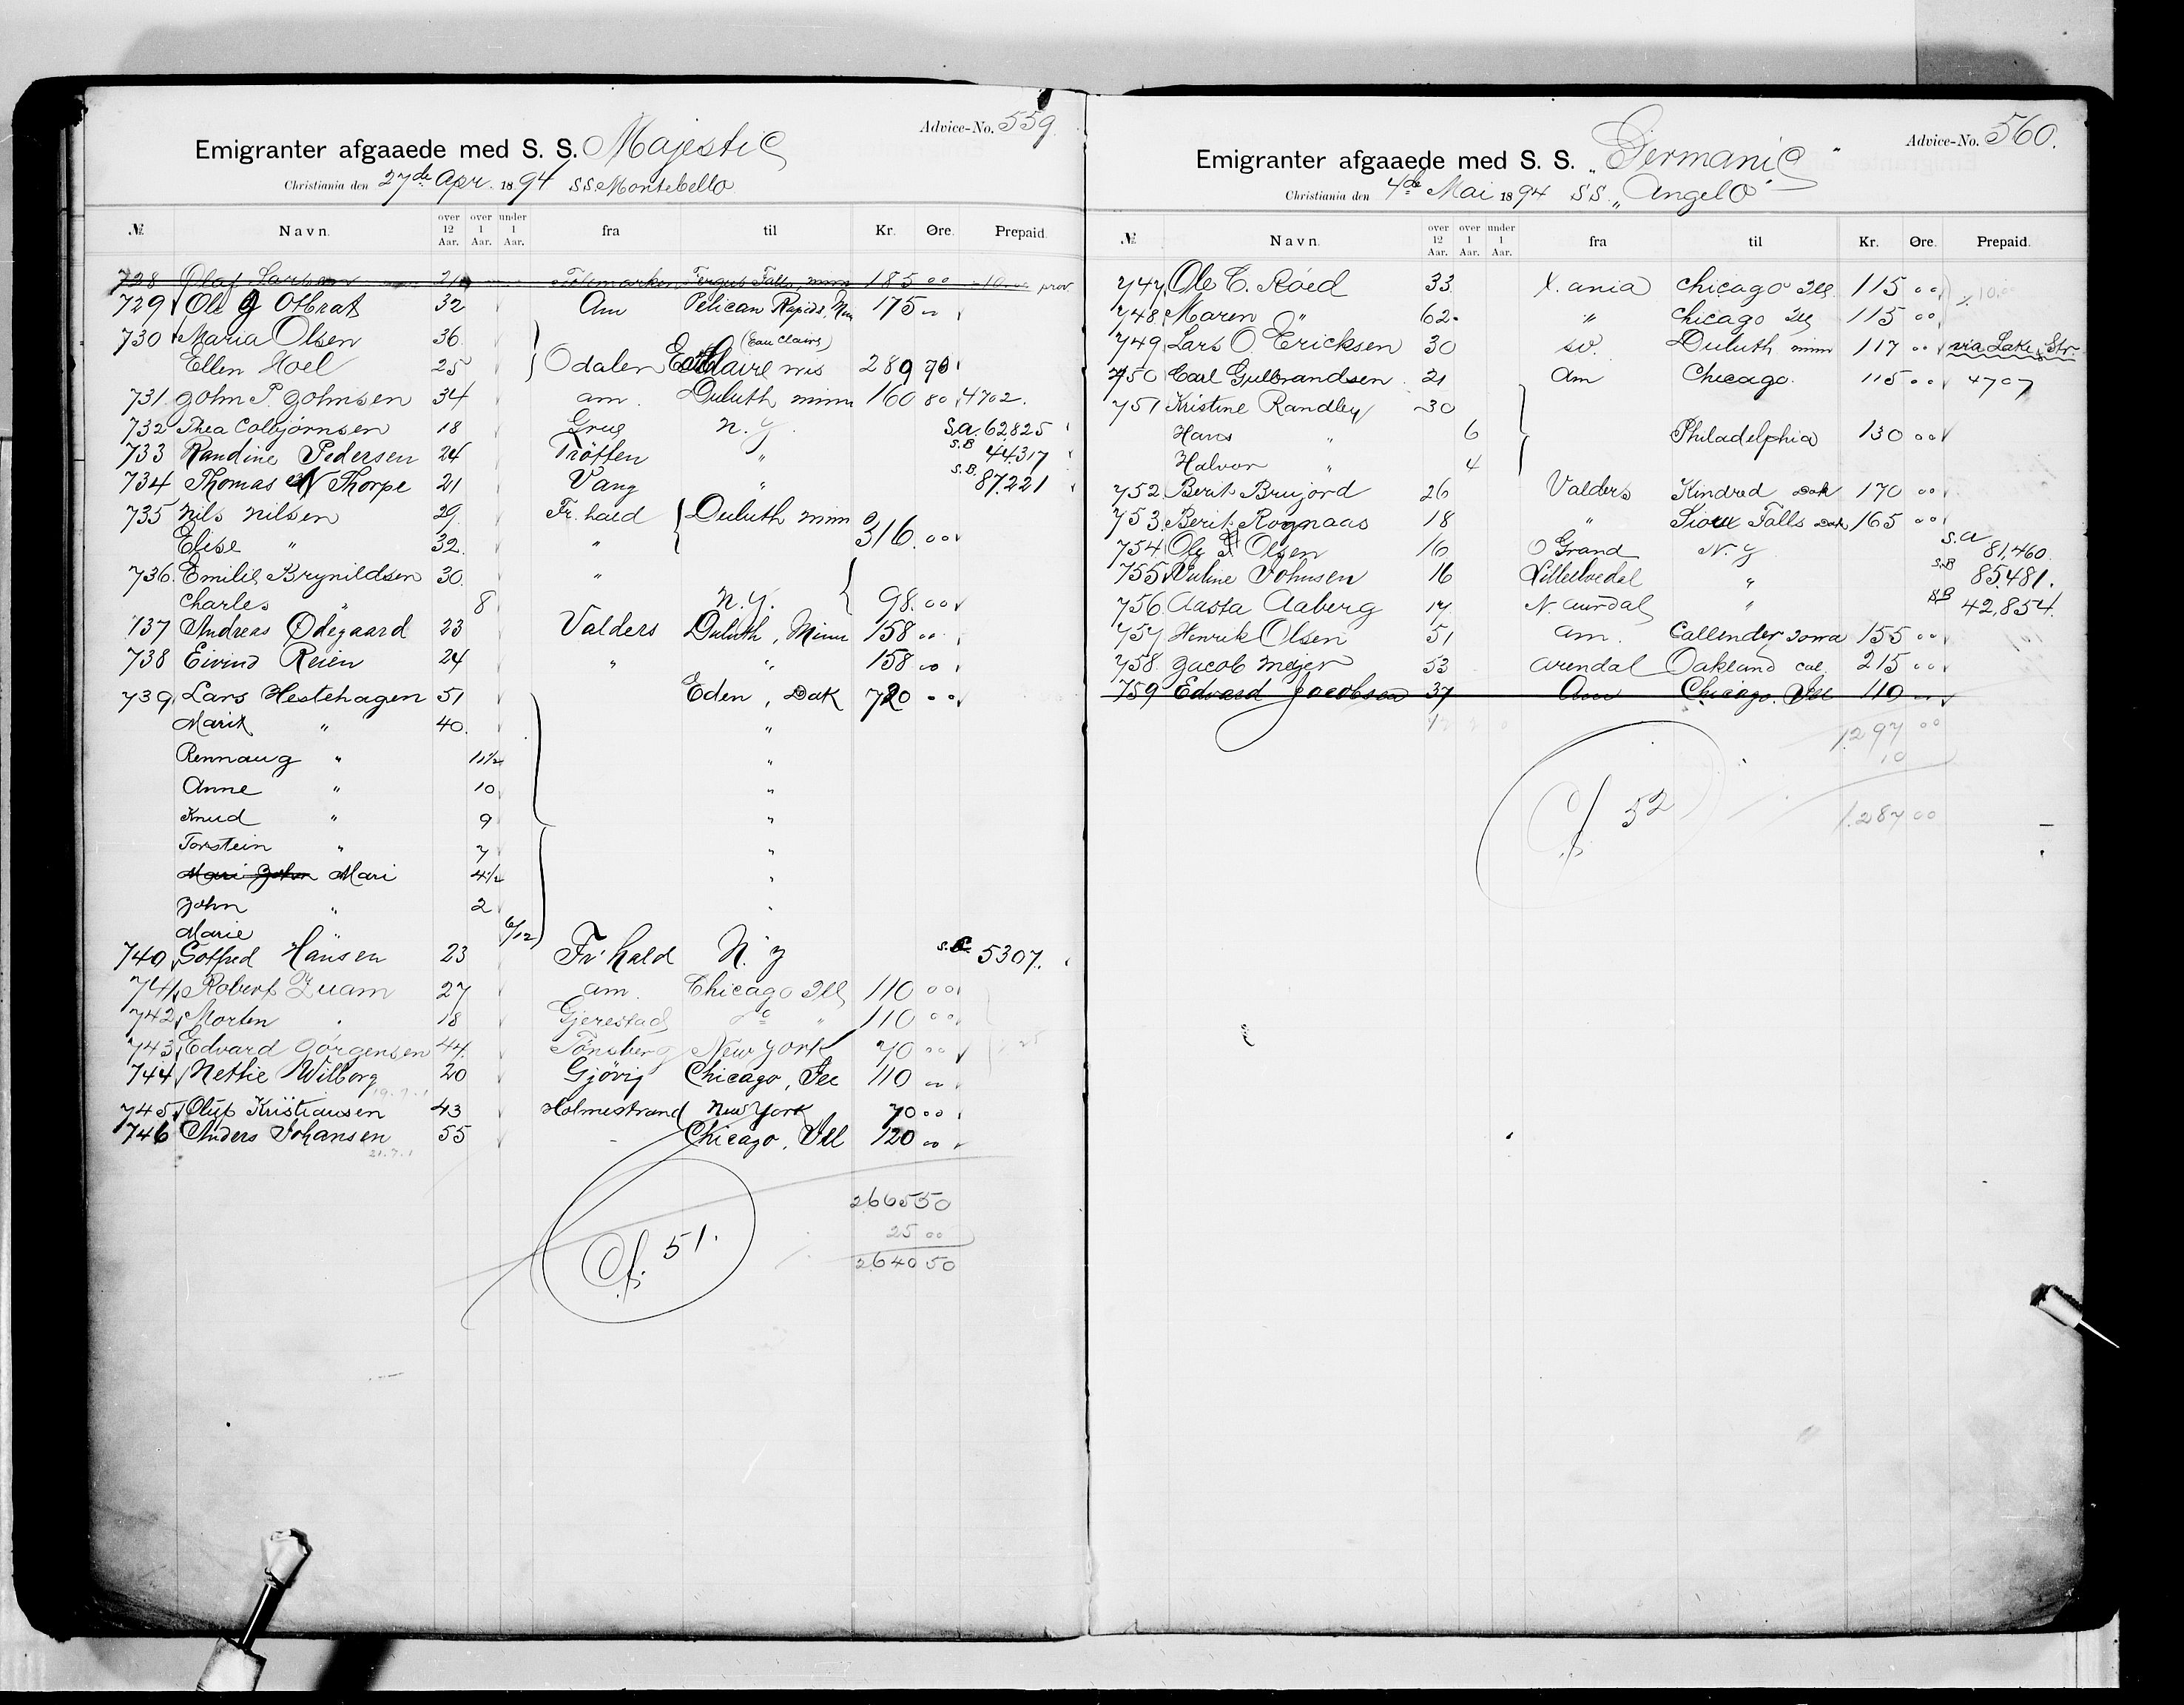 Advice-No. 559.
Emigranter afgaaede med S. S. Majestic
Christiania den 27de Apr. 1894 SS Montebello
№ Navn. over 12 Aar. over 1 Aar. under 1 Aar. fra til Kr. Øre. Prepaid.
728 Olaf Larsen 21 Telemarken Fergus Falls, Minn 185 00 10.00 prov
729 Ole G Otbrat 32 Am Pelican Rapids, 175 00
730 Maria Olsen 36 (Eau Claire)
Ellen Hoel 25 Odalen Eau Claire wis 289 90
731 John P. Johnsen 34 am. Duluth minn 160 80 4702.
732 Thea Colbjørnsen 18 Grue N.Y. S.A. 62825
733 Randine Pedersen 24 Trötten " S.B 44317
734 Thomas N Thorpe 21 Vang " S.B. 87.221
735 Nils Nilsen 29 Fr. hald Duluth minn
Elise " 32 " 316.00
736. Emilie Brynildsen 30. "
Charles " 8 N.Y. 98.00
737 Andreas Ødegaard 23 Valders Duluth, Minn 158 00
738 Eivind Reien 24 " " 158 00
739 Lars Hestehagen 51 Eden, Dak 720 00
Marit " 40. "
Rennaug " 11 1/2 "
Anne " 10 "
Knud " 9 "
Torstein " 7 "
Mari John Mari 4 1/2 "
John " 2 "
Marie " 6/12
740 Gotfred Hansen 23 Fr hald N.Y S.C. 5307.
741 Robert Quam 27 am. Chicago Ill 110 00
742 Morten " 18 Gjerestad do " 110 00
743 Edvard Jörgensen 44. Tönsberg New York 70 00
744 Nettie Wilborg 20 Gjövig Chicago, Ill 110 00
745 Oluf Kristiansen 43 Holmestrand New York 70 00
746 Anders Johansen 55 - Chicago, Ill 120 00
21.7.1
2665 50
25 00
2640 50
51.
Advice-No. 560.
Emigranter afgaaede med S. S. "Germanic"
Christiania den 4de Mai 1894 SS. "Angelo"
№ Navn. over 12 Aar. over 1 Aar. under 1 Aar. fra til Kr. Øre. Prepaid.
747 Ole C. Röed 33 X.ania Chicago Ill 115 00 10.00
748 Maren " 62. " Chicago Ill 115 00
749 Lars O Ericksen 30 sv. Duluth minn 117 00 via Lake Str.
750 Carl Gulbrandsen 21 Am Chicago. 115 00 4707
751 Kristine Randley 30
Hans " 6 Philadelphia 130 00
Halvor " 4
752 Berit Brujord 26 Valders Kindred Dak 170 00
753. Berit Rognaas 18 " Sioux Falls Dak 165 00
754 Ole Olsen 16 O Grand N.Y S.A 81,460.
755 Pauline Johnsen 16 " S.B 85,481.
756 Aasta Aaberg 17 N. Aurdal " S.B 42,854.
757 Henrik Olsen 51 am. Callender Iowa 155 00
758 Jacob Mejer 53 Arendal Oakland Cal. 215 00
759 Edvard Jacobsen 37 Am Chicago. Ill 110 00
1297 00
10
1.287 00
52